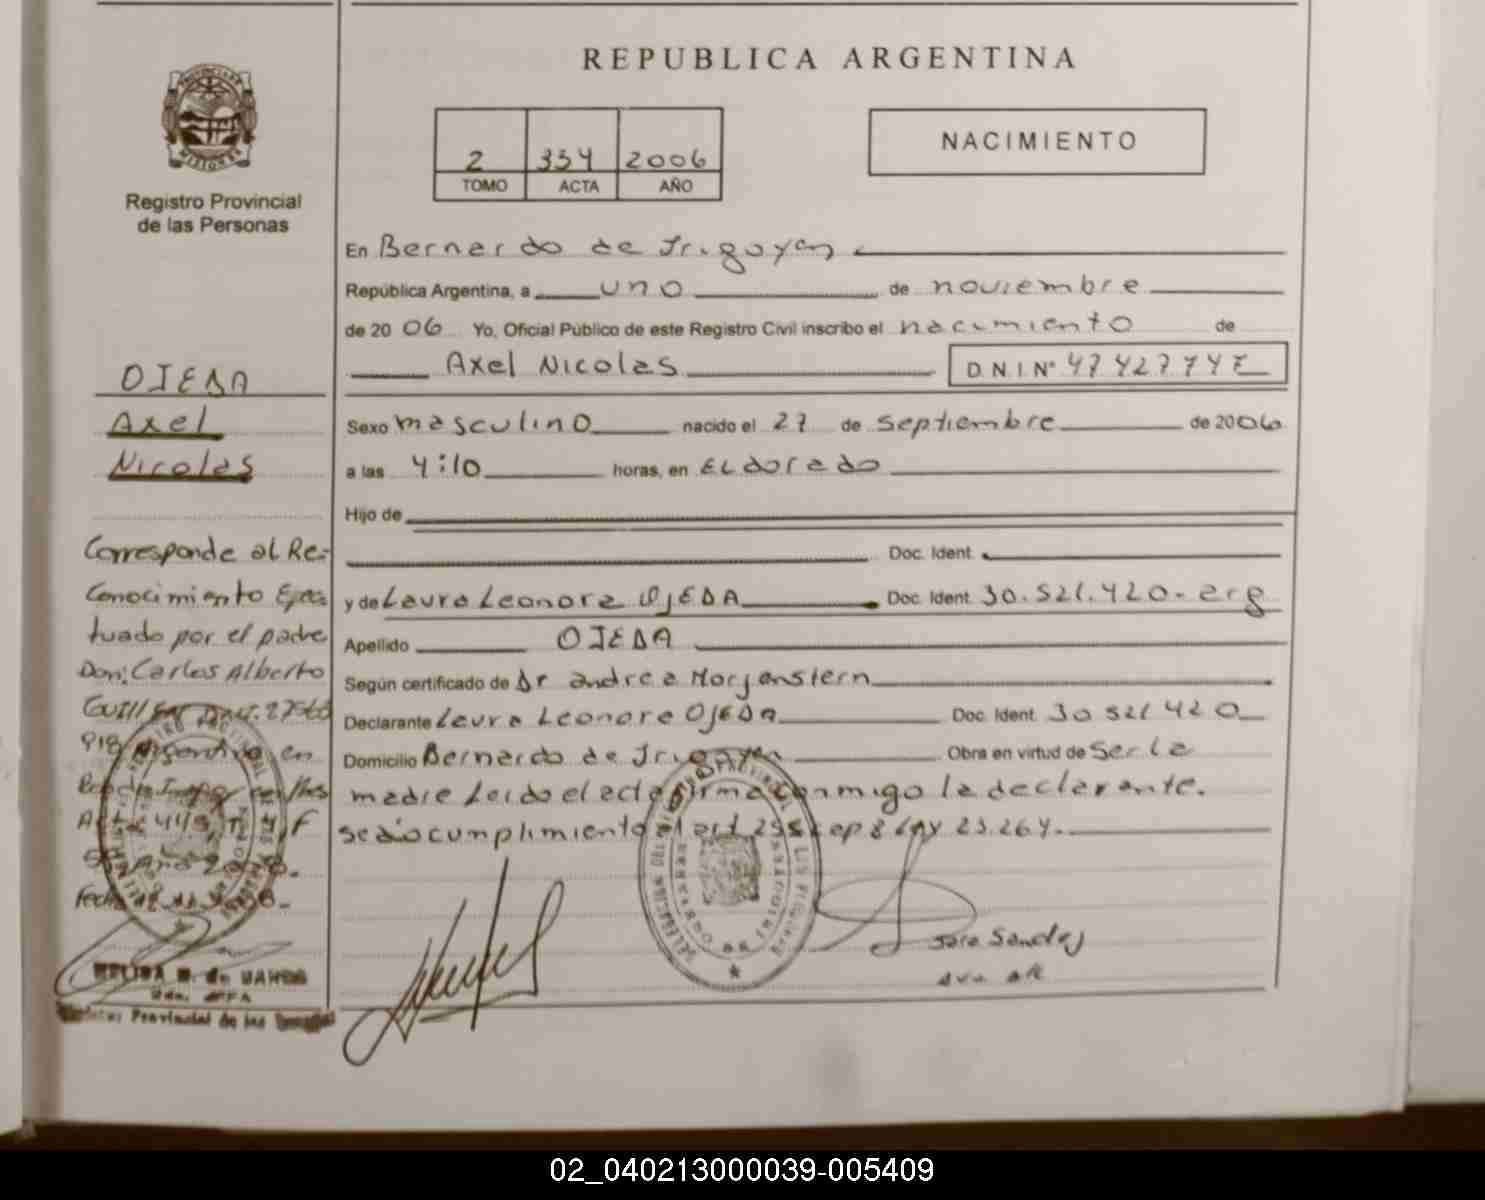 PROVINCIA DE MISIONES
Registro Provincial
de las Personas
REPUBLICA ARGENTINA
2 334 2006
TOMO ACTA AÑO
NACIMIENTO
En Bernardo de Irigoyen
República Argentina, a uno de noviembre
de 2006 Yo, Oficial Público de este Registro Civil inscribo el nacimiento de
Axel Nicolas D.N.I. Nº 47427747
Sexo masculino nacido el 27 de septiembre de 2006
a las 4:10 horas, en ELdorado
Hijo de
Doc. Ident.
y de Laura Leonora OJEDA Doc. Ident. 30.521.420- arg
Apellido OJEDA
Según certificado de Dr andrea Morgenstern
Declarante Laura Leonora OJEDA Doc. Ident. 30 521 420
Domicilio Bernardo de Irigoyen Obra en virtud de Ser la
madre Leido el acta firma conmigo la declarante.
se dio cumplimiento al art 255 cap 8 Ley 23.264.
OJEDA
Axel
Nicolas
Corresponde al Re-
conocimiento Efec
tuado por el padre
Don: Carlos Alberto
Argentino en
Acta
Año
Fecha
Registro Provincial de las Personas
02_040213000039-005409